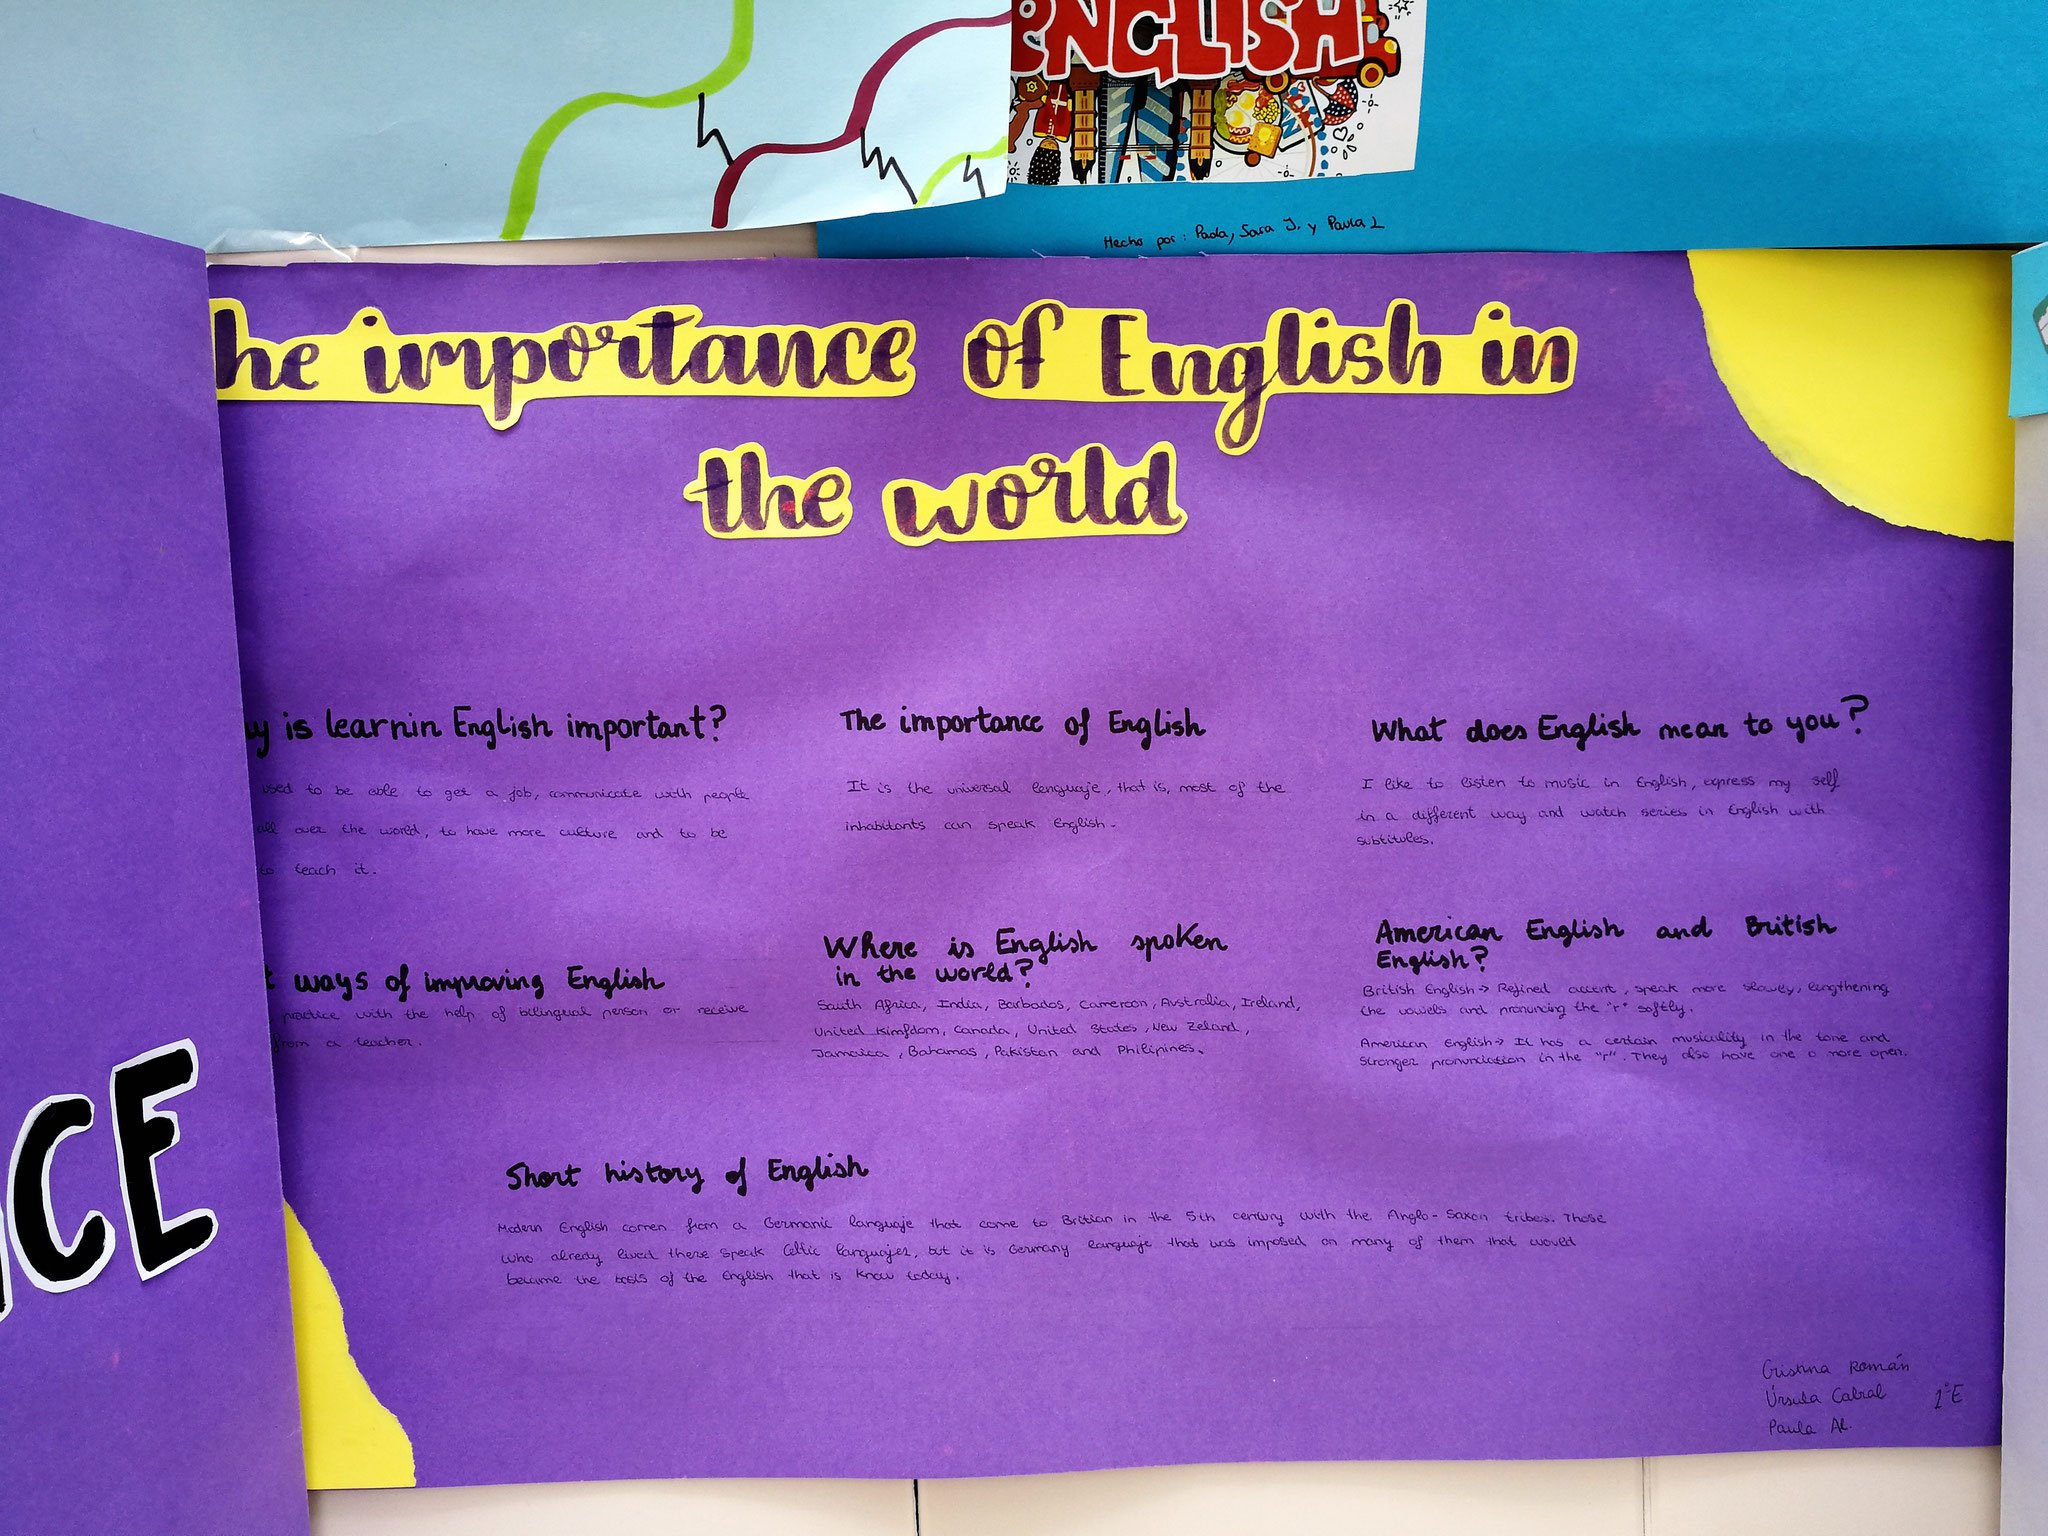 ENGLISH
Hecho por: Paola, Sara J. y Paula L
he importance of English in
the world
y is learnin English important?
used to be able to get a job, communicate with people
all over the world, to have more culture and to be
to teach it.
The importance of English
It is the universal lenguaje, that is, most of the
inhabitants can speak English.
What does English mean to you?
I like to listen to music in English, express my self
in a different way and watch series in English with
subtitules.
t ways of improving English
practice with the help of bilingual person or receive
from a teacher.
Where is English spoken
in the world?
South Africa, India, Barbados, Cameroon, Australia, Ireland,
United Kimfdom, Canada, United States, New Zeland,
Jamaica, Bahamas, Pakistan and Philipines.
American English and British
English?
British English → Refined accent, speak more slowey, lengthening
the vowels and pronuncing the "r" softly.
American English → It has a certain musicality in the tone and
stronger pronunciation in the "r". They also have one o more open.
Short history of English
Modern English comen from a Germanic languaje that come to Britian in the 5th century with the Anglo-Saxon tribes. Those
who alredy lived there speak Celtic languajes, but it is Germany languaje that was imposed on many of them that would
become the basis of the English that is know today.
CE
Cristina Román
Úrsula Cabral 1ºE
Paula Al.